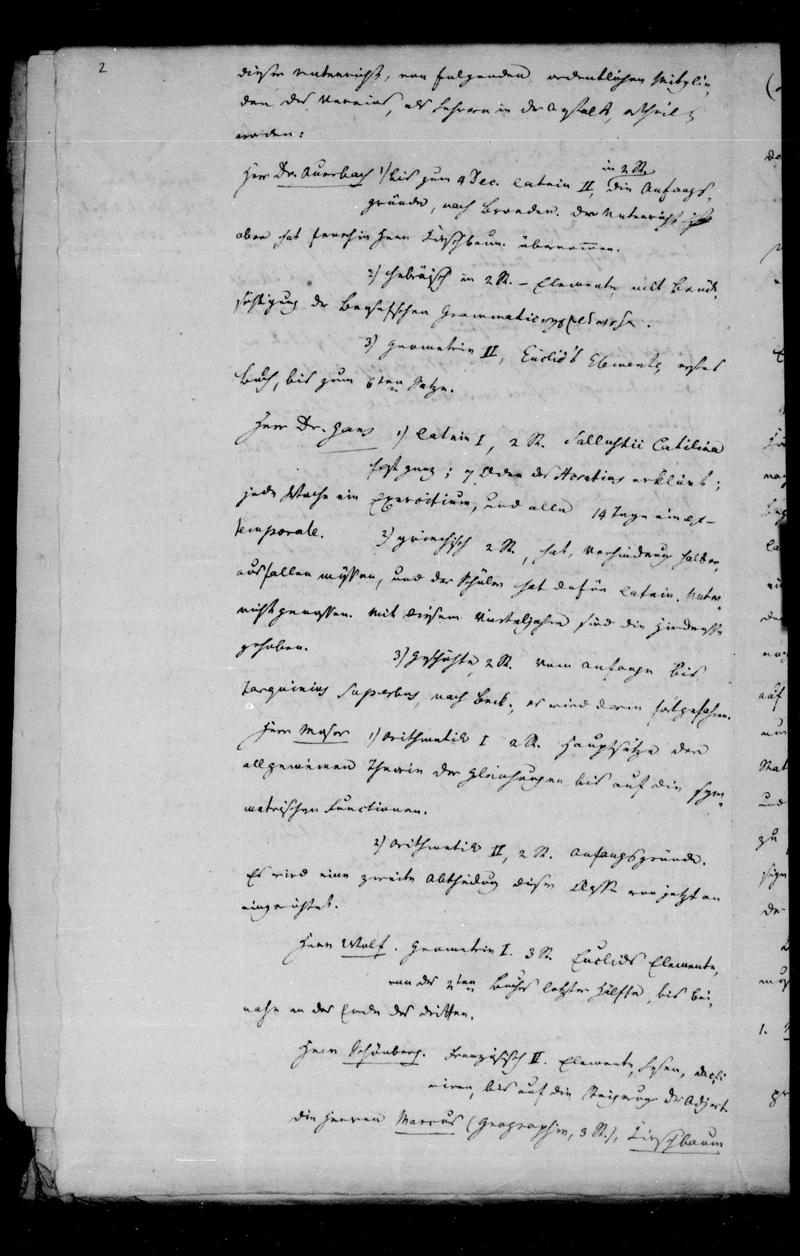 2
dieser Unterricht, von folgenden ordentlichen Mitglie-
dern des Vereins, als Lehrern in der Anstalt, ertheilt
worden:
Herr Dr. Auerbach 1) bis zum 4 Dec. Latein II, in 2 St. die Anfangs-
gründe, nach Broeder. Der Unterricht ist
aber hat fernerhin Herr Kirschbaum übernommen.
2) hebräisch in 2 St. – Elemente, mit Berück-
sichtigung der Grammatic
3) Geometrie II, Euclid's Elemente, erstes
Buch, bis zum 6ten Satze.
Herr Dr. Gans 1) Latein I, 2 St. Sallustii Catilina
fast ganz; 7 Oden des Horatius erklärt;
jede Woche ein Exercitium, und alle 14 Tage ein ex-
temporale. 2) griechisch 2 St., hat, Verhinderung halber,
ausfallen müssen, und der Schüler hat dafür latein. Unter-
richt genossen. Mit diesem Vierteljahre sind die Hindernisse
gehoben.
3) Geschichte, 2 St. vom Anfange bis
Tarquinius Superbus, nach Beck; es wird darin fortgefahren.
Herr Moser 1) Arithmetik I 2 St. Hauptsätze der
allgemeinen Theorie der Gleichungen bis auf die sym-
metrischen Functionen.
2) Arithmetik II, 2 St. Anfangsgründe.
Es wird eine zweite Abtheilung dieser Classe von jetzt an
eingerichtet.
Herr Wolf. Geometrie I. 3 St. Euclids Elemente,
von des 2ten Buches letzter Hälfte, bis bei-
nahe an das Ende des dritten.
Herr Schönberg. Französisch II. Elemente, Lesen, decli-
niren, bis auf die Steigerung der Adject.
Die Herren Marcus (Geographie, 3 St.), Kirschbaum